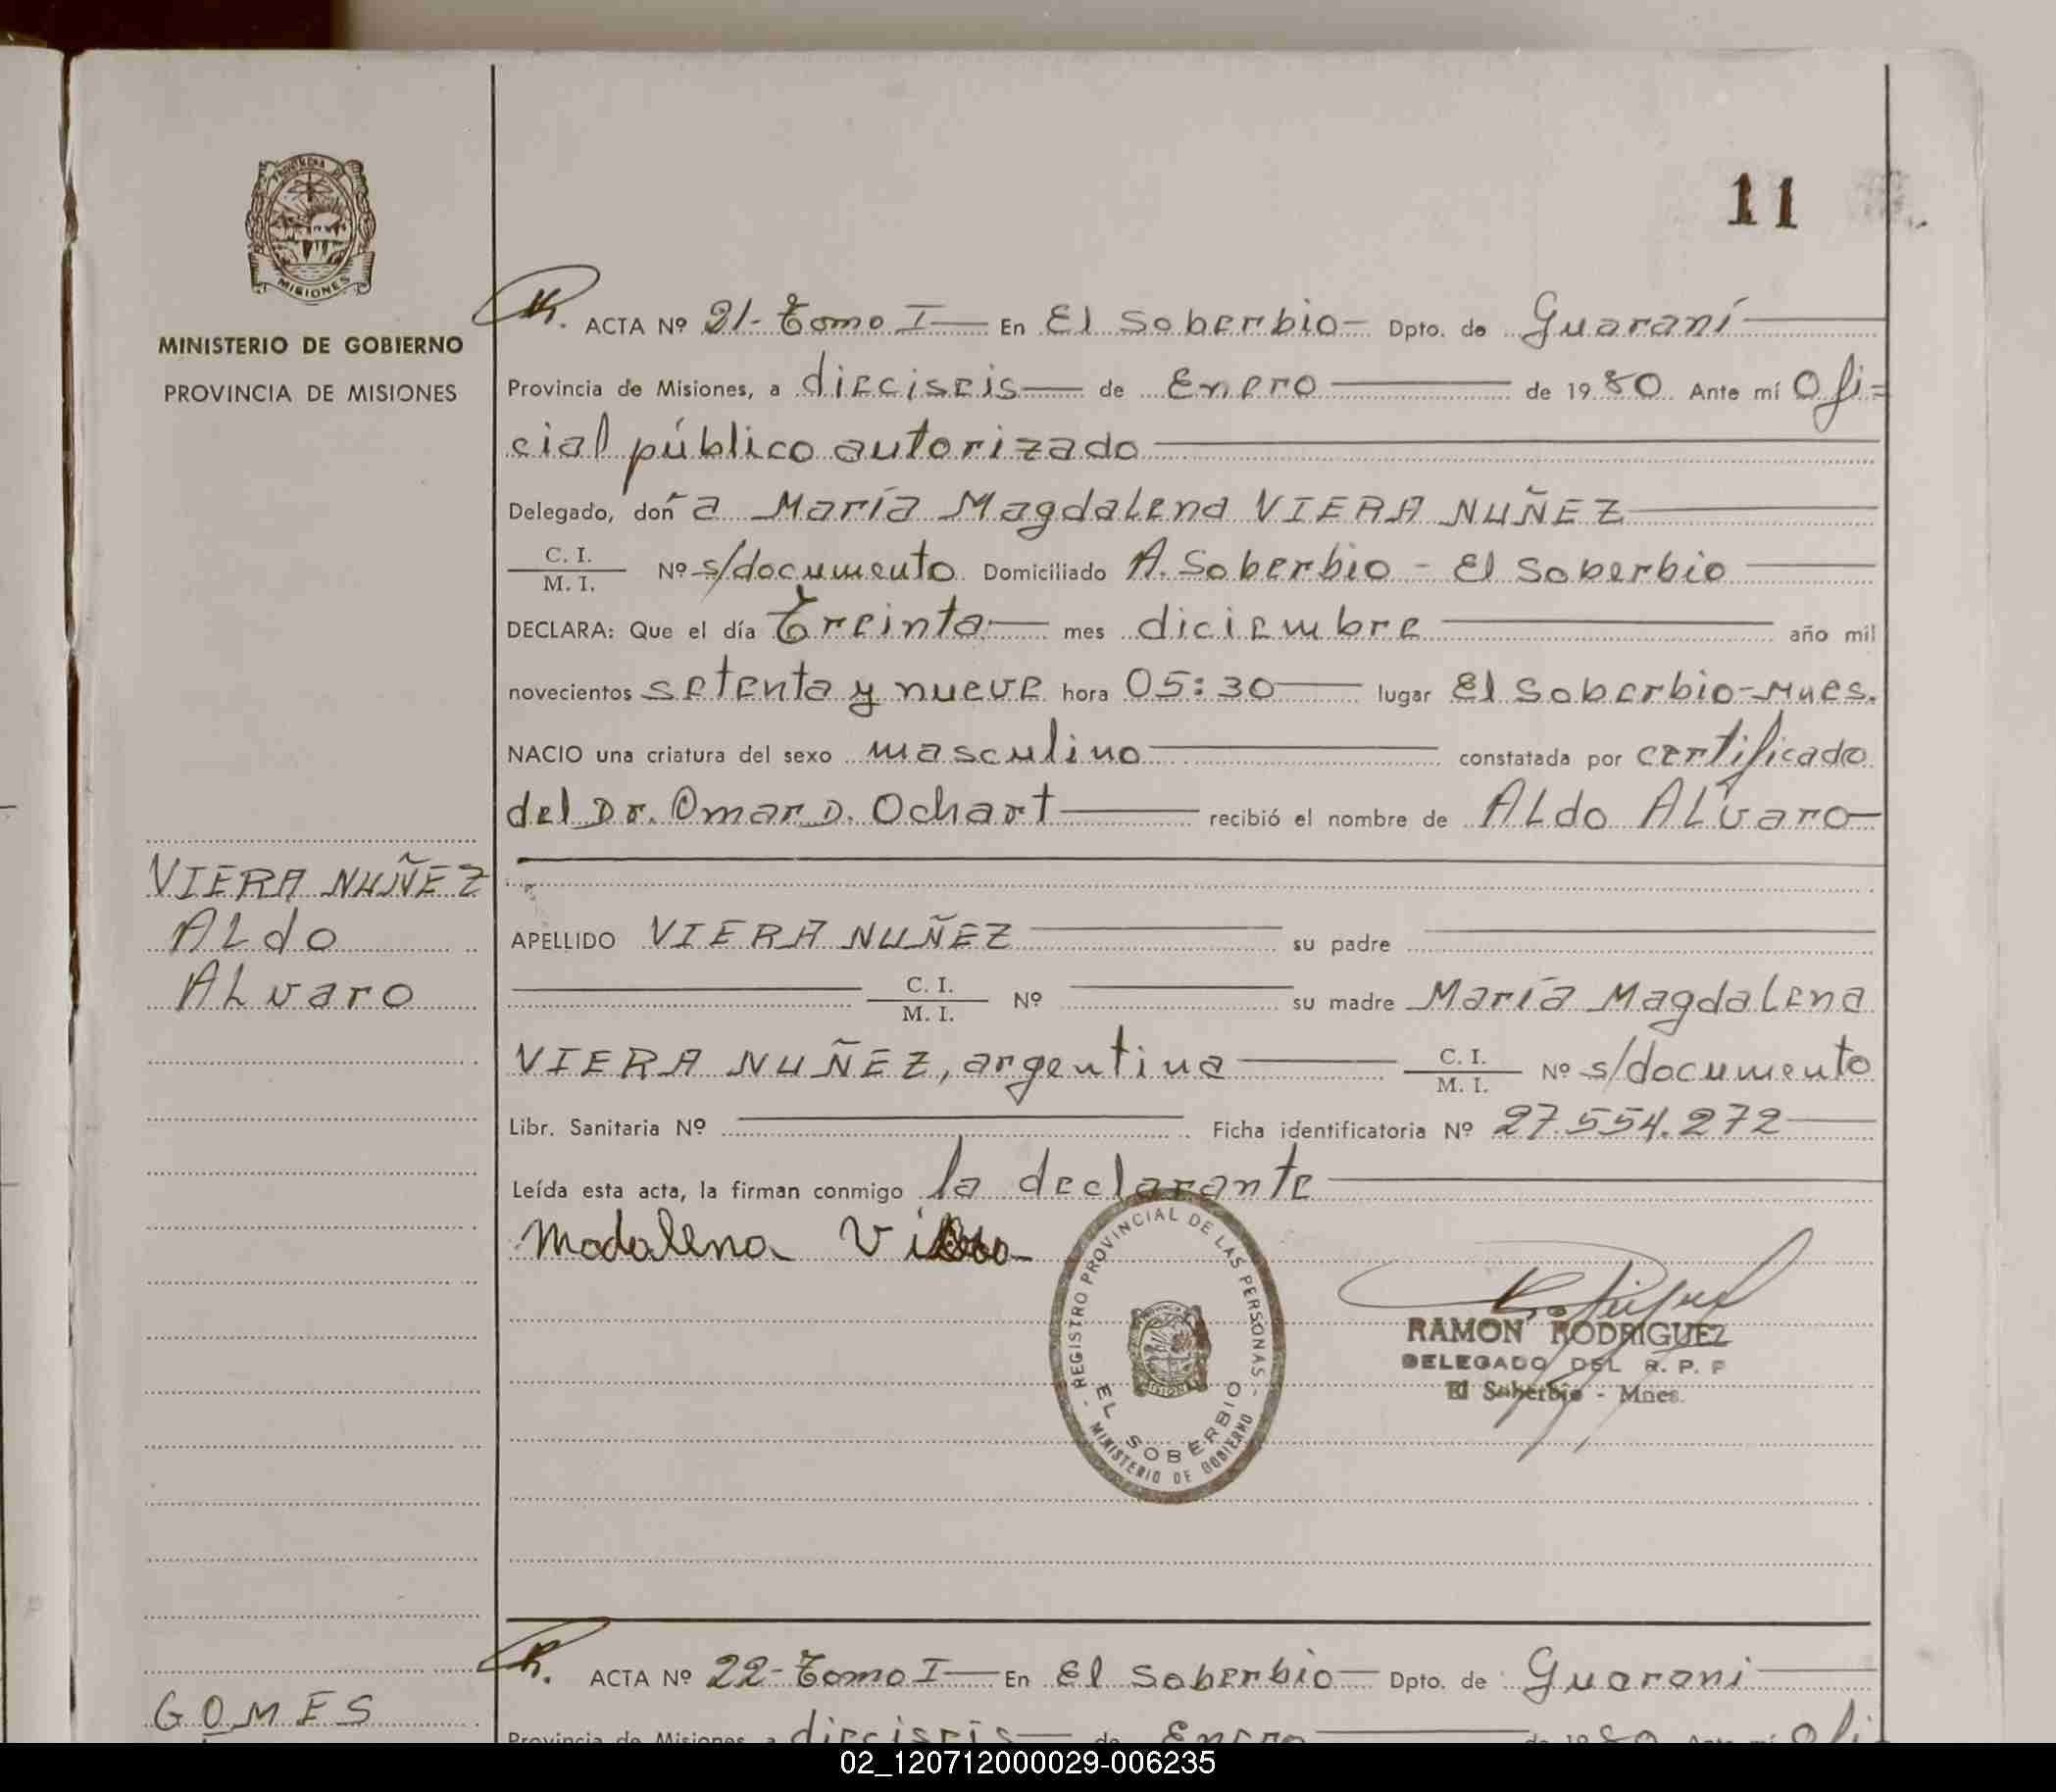 11
PROVINCIA DE
MISIONES
MINISTERIO DE GOBIERNO
PROVINCIA DE MISIONES
ACTA Nº 21- Tomo I En El Soberbio- Dpto. de Guaraní
Provincia de Misiones, a dieciseis de Enero de 1980 Ante mí Ofi=
cial público autorizado
Delegado, doña María Magdalena VIERA NUÑEZ
C. I.
M. I. Nº s/documento Domiciliado A. Soberbio - El Soberbio
DECLARA: Que el día Treinta mes diciembre año mil
novecientos setenta y nueve hora 05:30 lugar El Soberbio-Mnes.
NACIO una criatura del sexo masculino constatada por certificado
del Dr. Omar D. Ochart recibió el nombre de ALdo ALvaro
VIERA NUÑEZ
ALdo
ALvaro
APELLIDO VIERA NUÑEZ su padre
C. I.
M. I. Nº su madre María Magdalena
VIERA NUÑEZ, argentina C. I.
M. I. Nº s/documento
Libr. Sanitaria Nº Ficha identificatoria Nº 27.554.272
Leída esta acta, la firman conmigo la declarante
Madalena
REGISTRO PROVINCIAL DE LAS PERSONAS -
EL SOBERBIO
- MINISTERIO DE GOBIERNO
RAMON RODRIGUEZ
DELEGADO DEL R. P. P
El Soberbio - Mnes.
ACTA Nº 22- Tomo I En El Soberbio Dpto. de Guarani
GOMES
Provincia de Misiones, a dieciseis de Enero de 1980 Ante mí Ofi
02_120712000029-006235